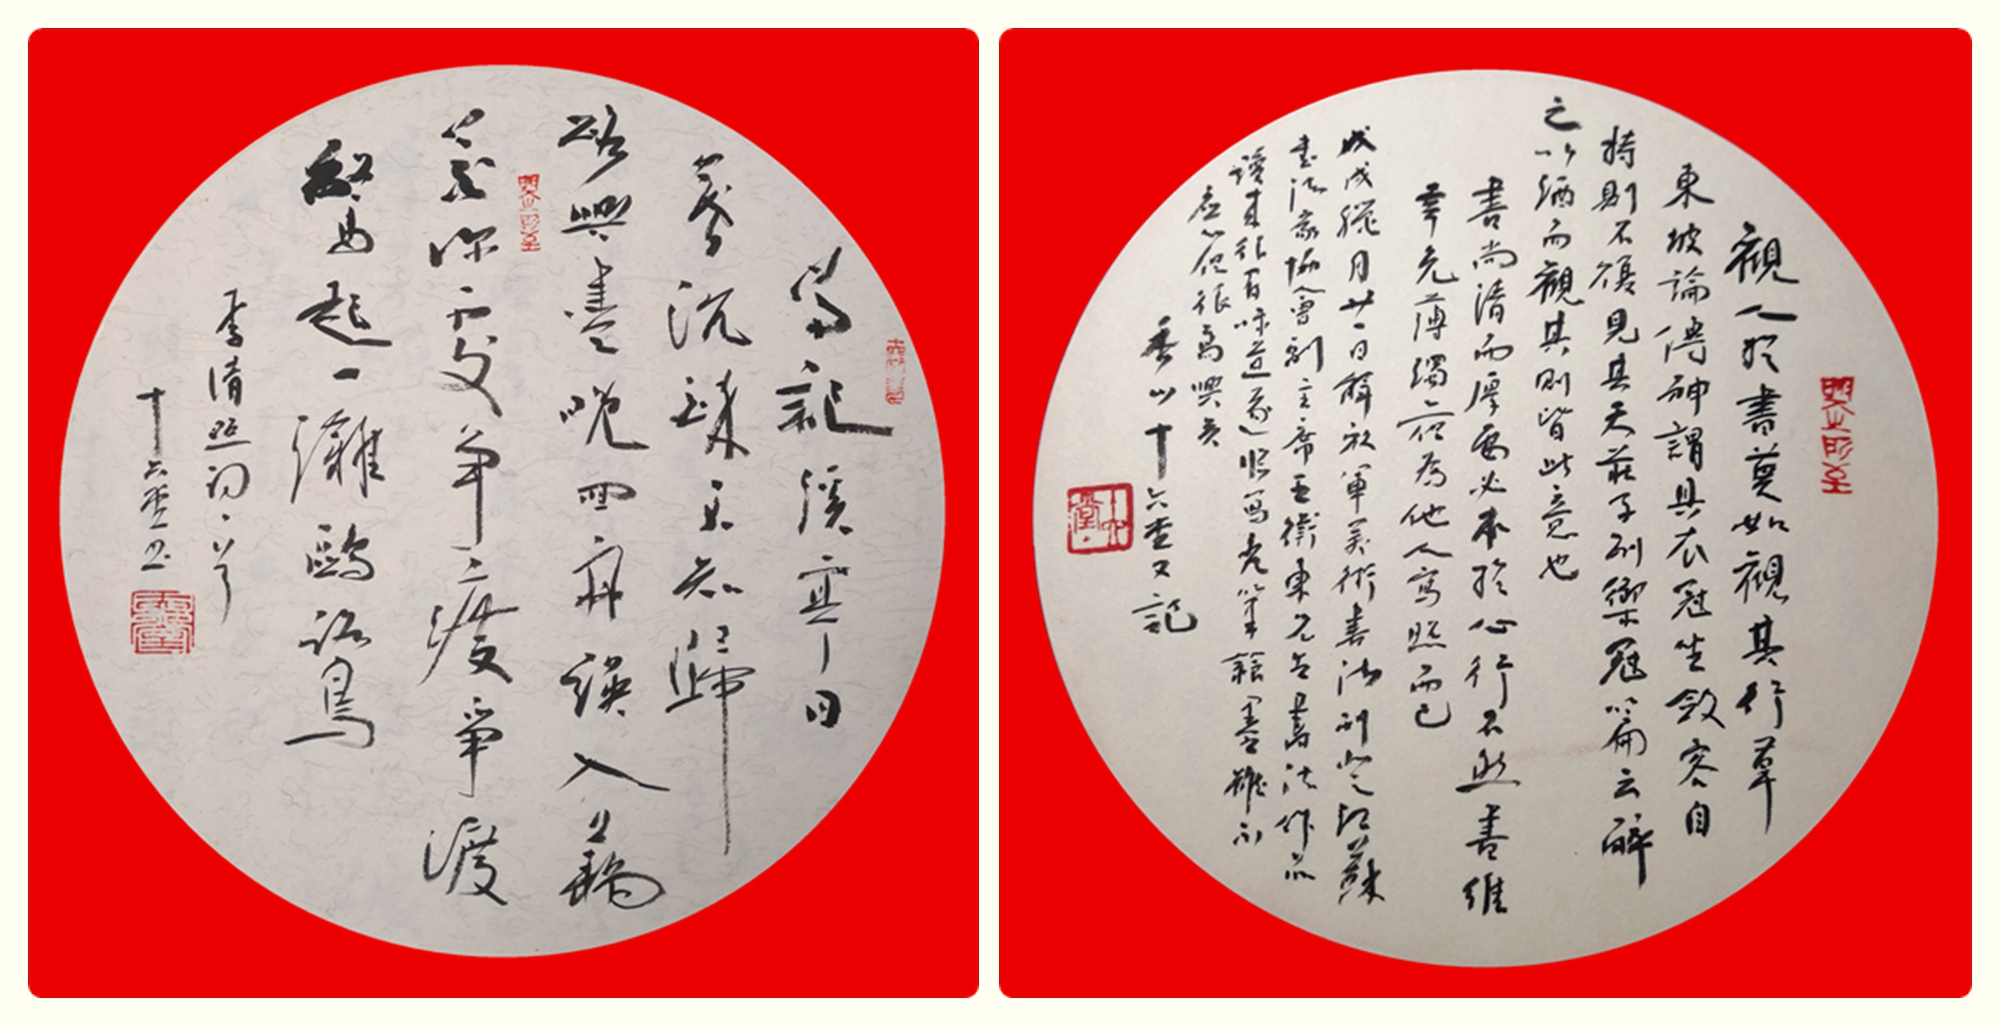 常記溪亭日
暮沉醉不知歸
路興盡晚回舟誤入藕
花深處爭渡爭渡
驚起一灘鷗鷺
李清照詞一首
十六堂
觀人於書莫如觀其行草
東坡論傳神謂具衣冠坐斂容自
持則不復見其天莊子列禦寇篇云醉
之以酒而觀其則皆此意也
書尚清而厚要必本於心行不然書雖
幸免薄濁亦但為他人寫照而已
戊戌臘月廿一日解放軍美術書法 江蘇
書法家協會副主席王衛東 書法作品
讀來很有味道遂 寫 筆 墨雖不
應心但很高興矣
香山十六堂又記